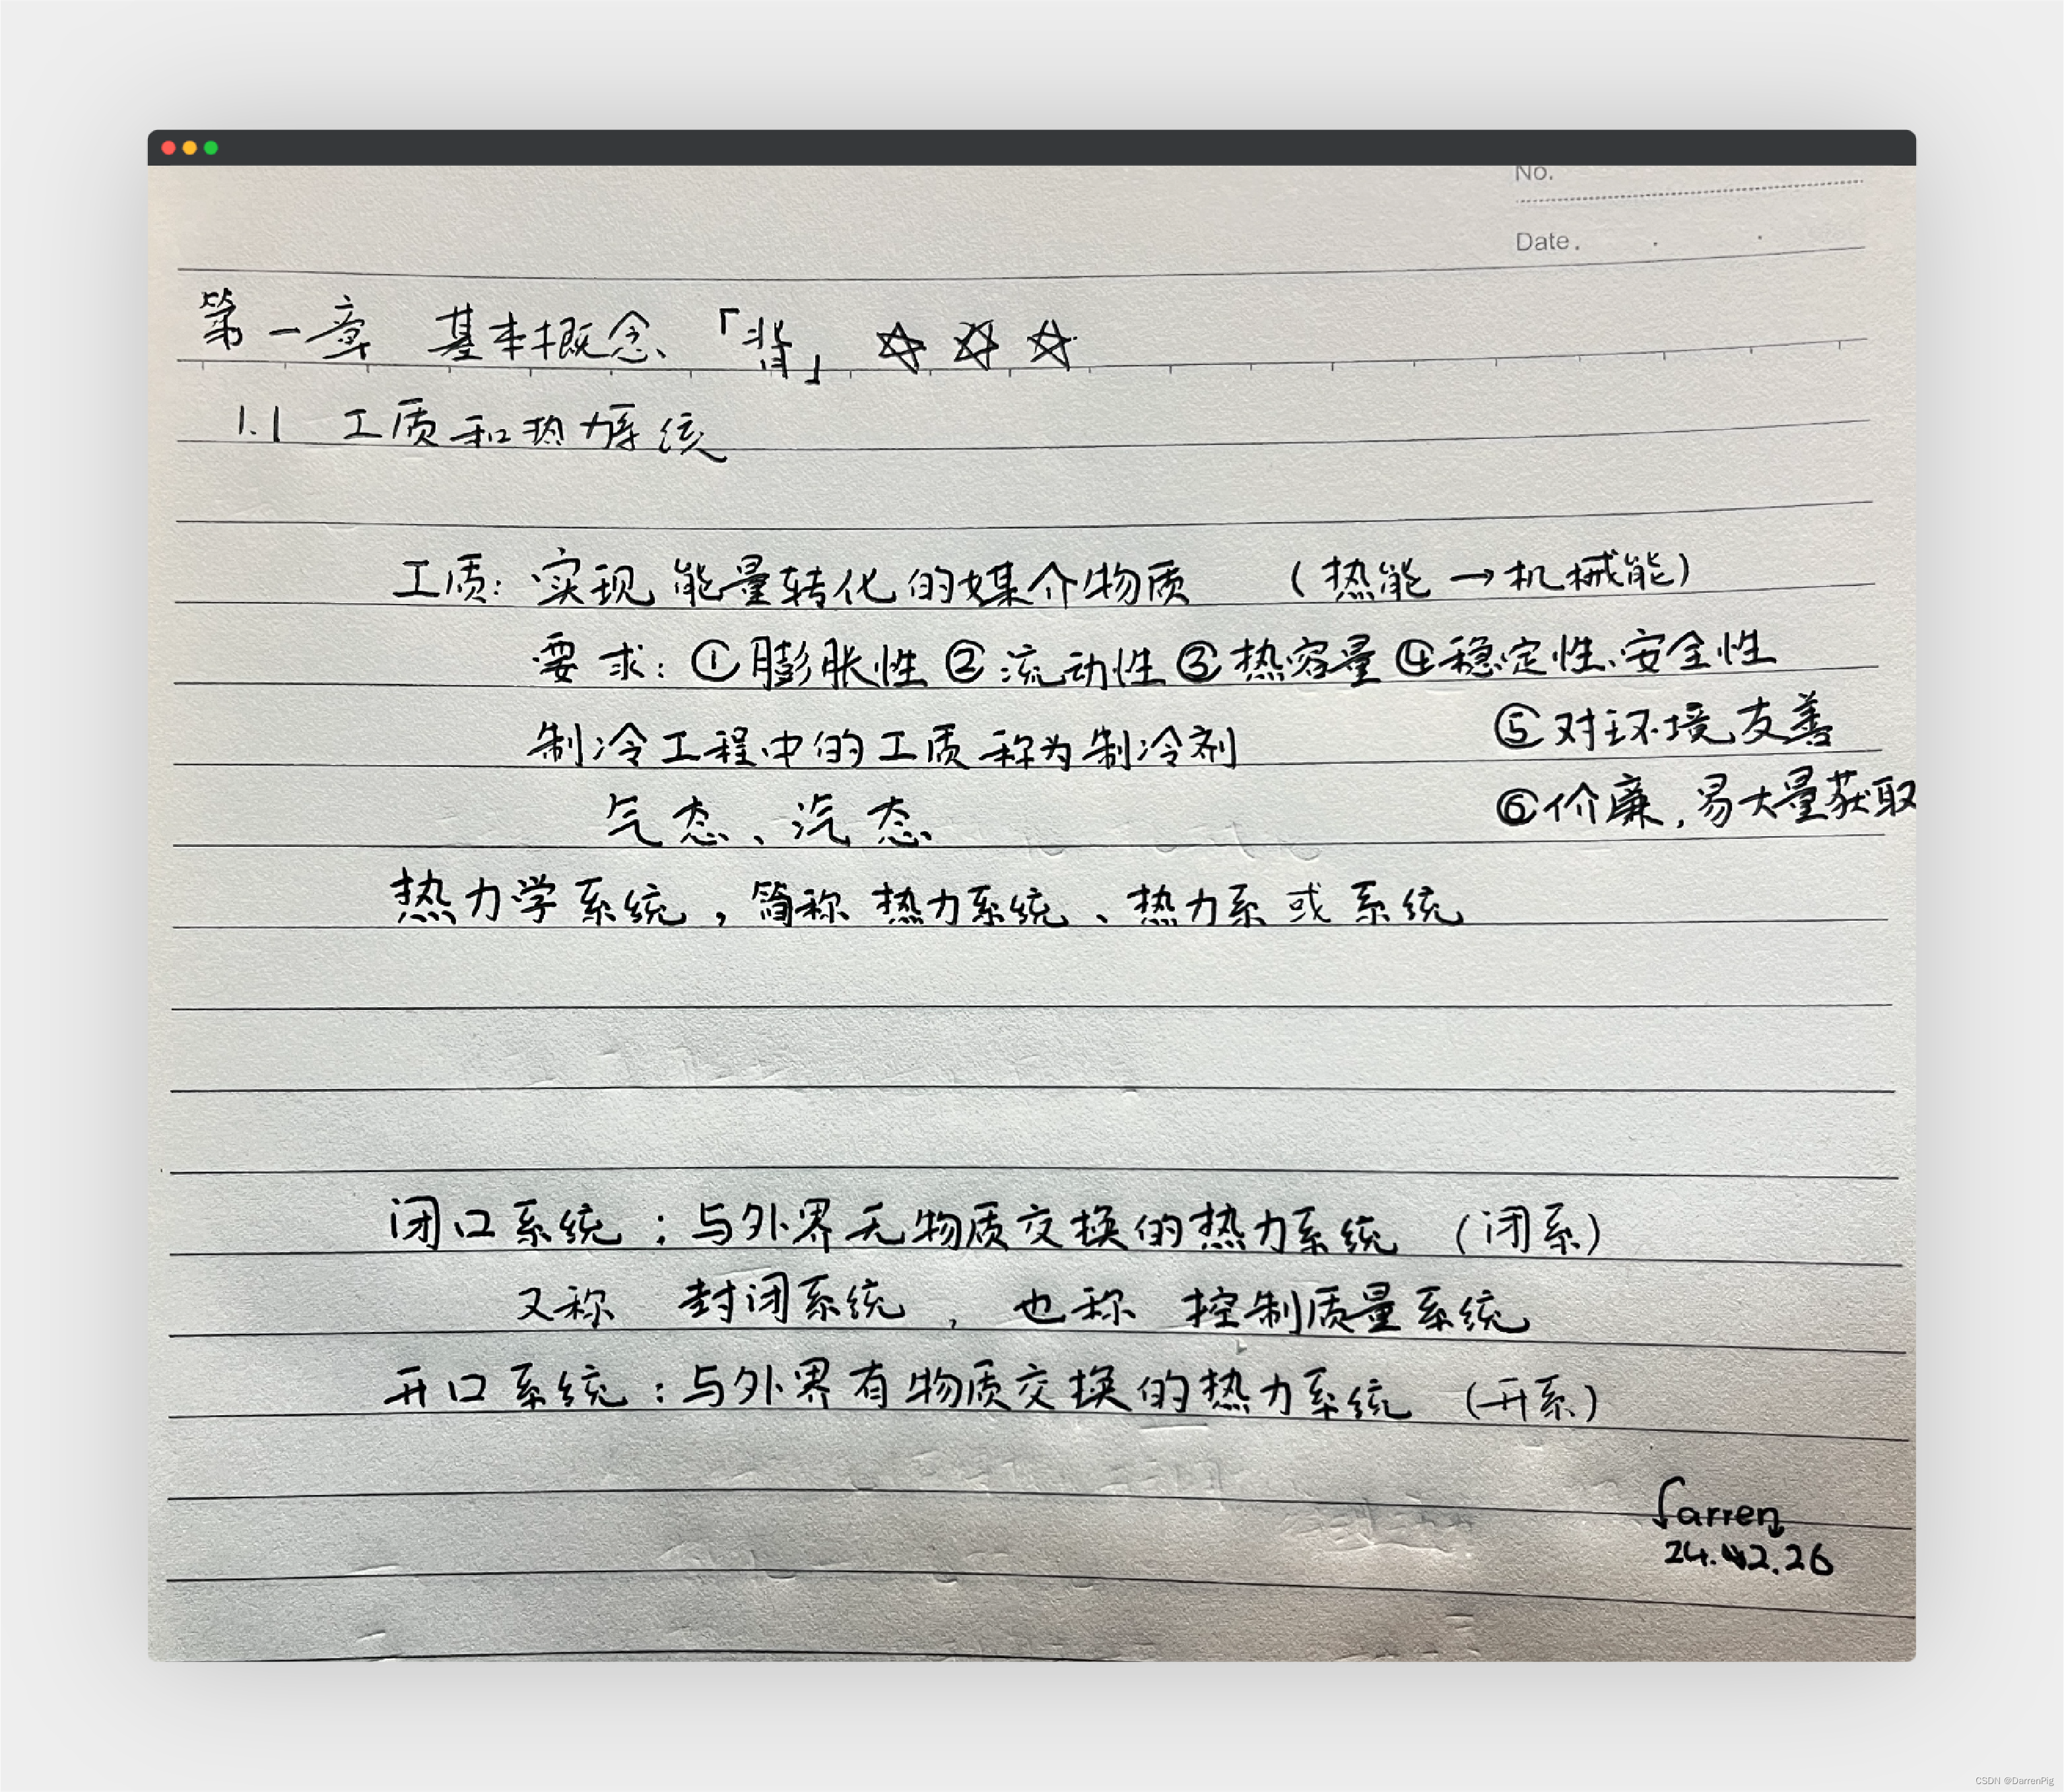 No.
Date.
第一章 基本概念「背」☆☆☆
1.1 工质和热力系统
工质：实现能量转化的媒介物质 （热能→机械能）
要求：①膨胀性②流动性③热容量④稳定性、安全性
制冷工程中的工质称为制冷剂 ⑤对环境友善
气态、汽态 ⑥价廉，易大量获取
热力学系统，简称热力系统、热力系或系统
闭口系统：与外界无物质交换的热力系统 （闭系）
又称 封闭系统，也称 控制质量系统
开口系统：与外界有物质交换的热力系统 （开系）
Darren
CSDN @DarrenPig